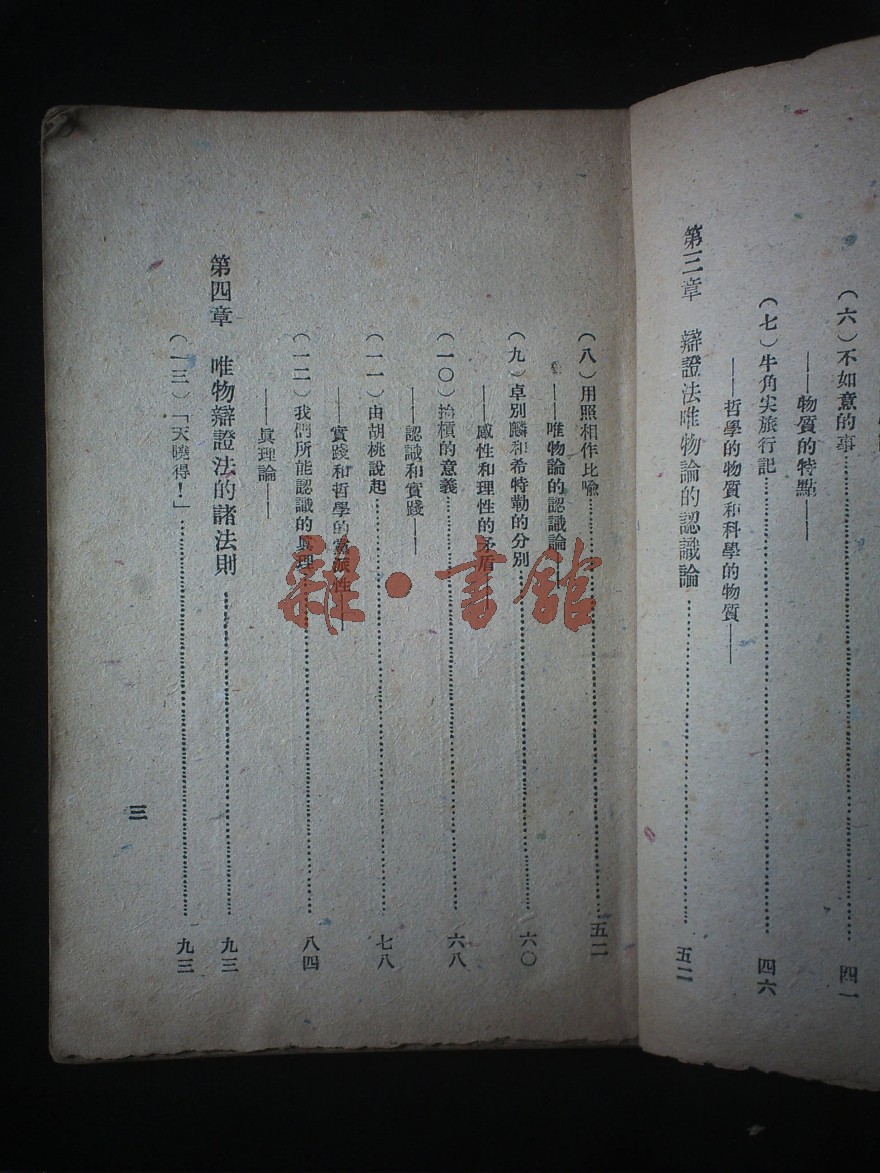 （六）不如意的事…………四一
——物質的特點——
（七）牛角尖旅行記…………四六
——哲學的物質和科學的物質——
第三章　辯證法唯物論的認識論…………五二
（八）用照相作比喩…………五二
——唯物論的認識論——
（九）卓別麟和希特勒的分別…………六〇
——感性和理性的矛盾
（一〇）抬槓的意義…………六八
——認識和實踐——
（一一）由胡桃說起…………七八
——實踐和哲學的黨派性——
（一二）我們所能認識的眞理…………八四
——眞理論——
第四章　唯物辯證法的諸法則…………九三
（一三）「天曉得！」…………九三
三
雜·書館